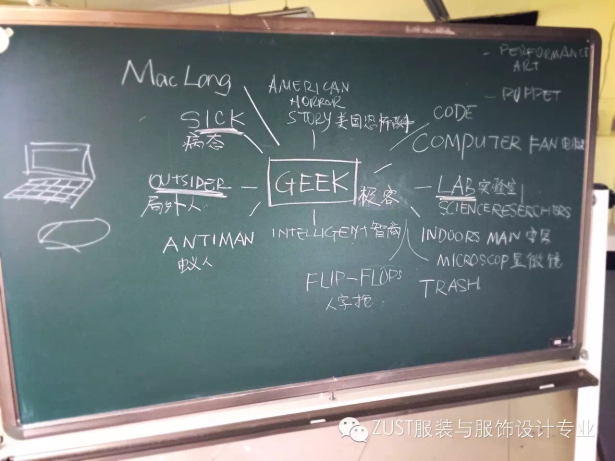 PERFORMANCE
ART
PUPPET
Mac Long
AMERICAN
HORROR
STORY 美国恐怖故事
CODE
SICK
病态
COMPUTER FAN
OUTSIDER
局外人
GEEK
极客
LAB 实验室
SCIENCE RESERCHERS
ANTIMAN
蚁人
INTELLIGENT 智商
INDOORS MAN 宅男
MICROSCOP 显微镜
FLIP-FLOPS
人字拖
TRASH
ZUST服装与服饰设计专业